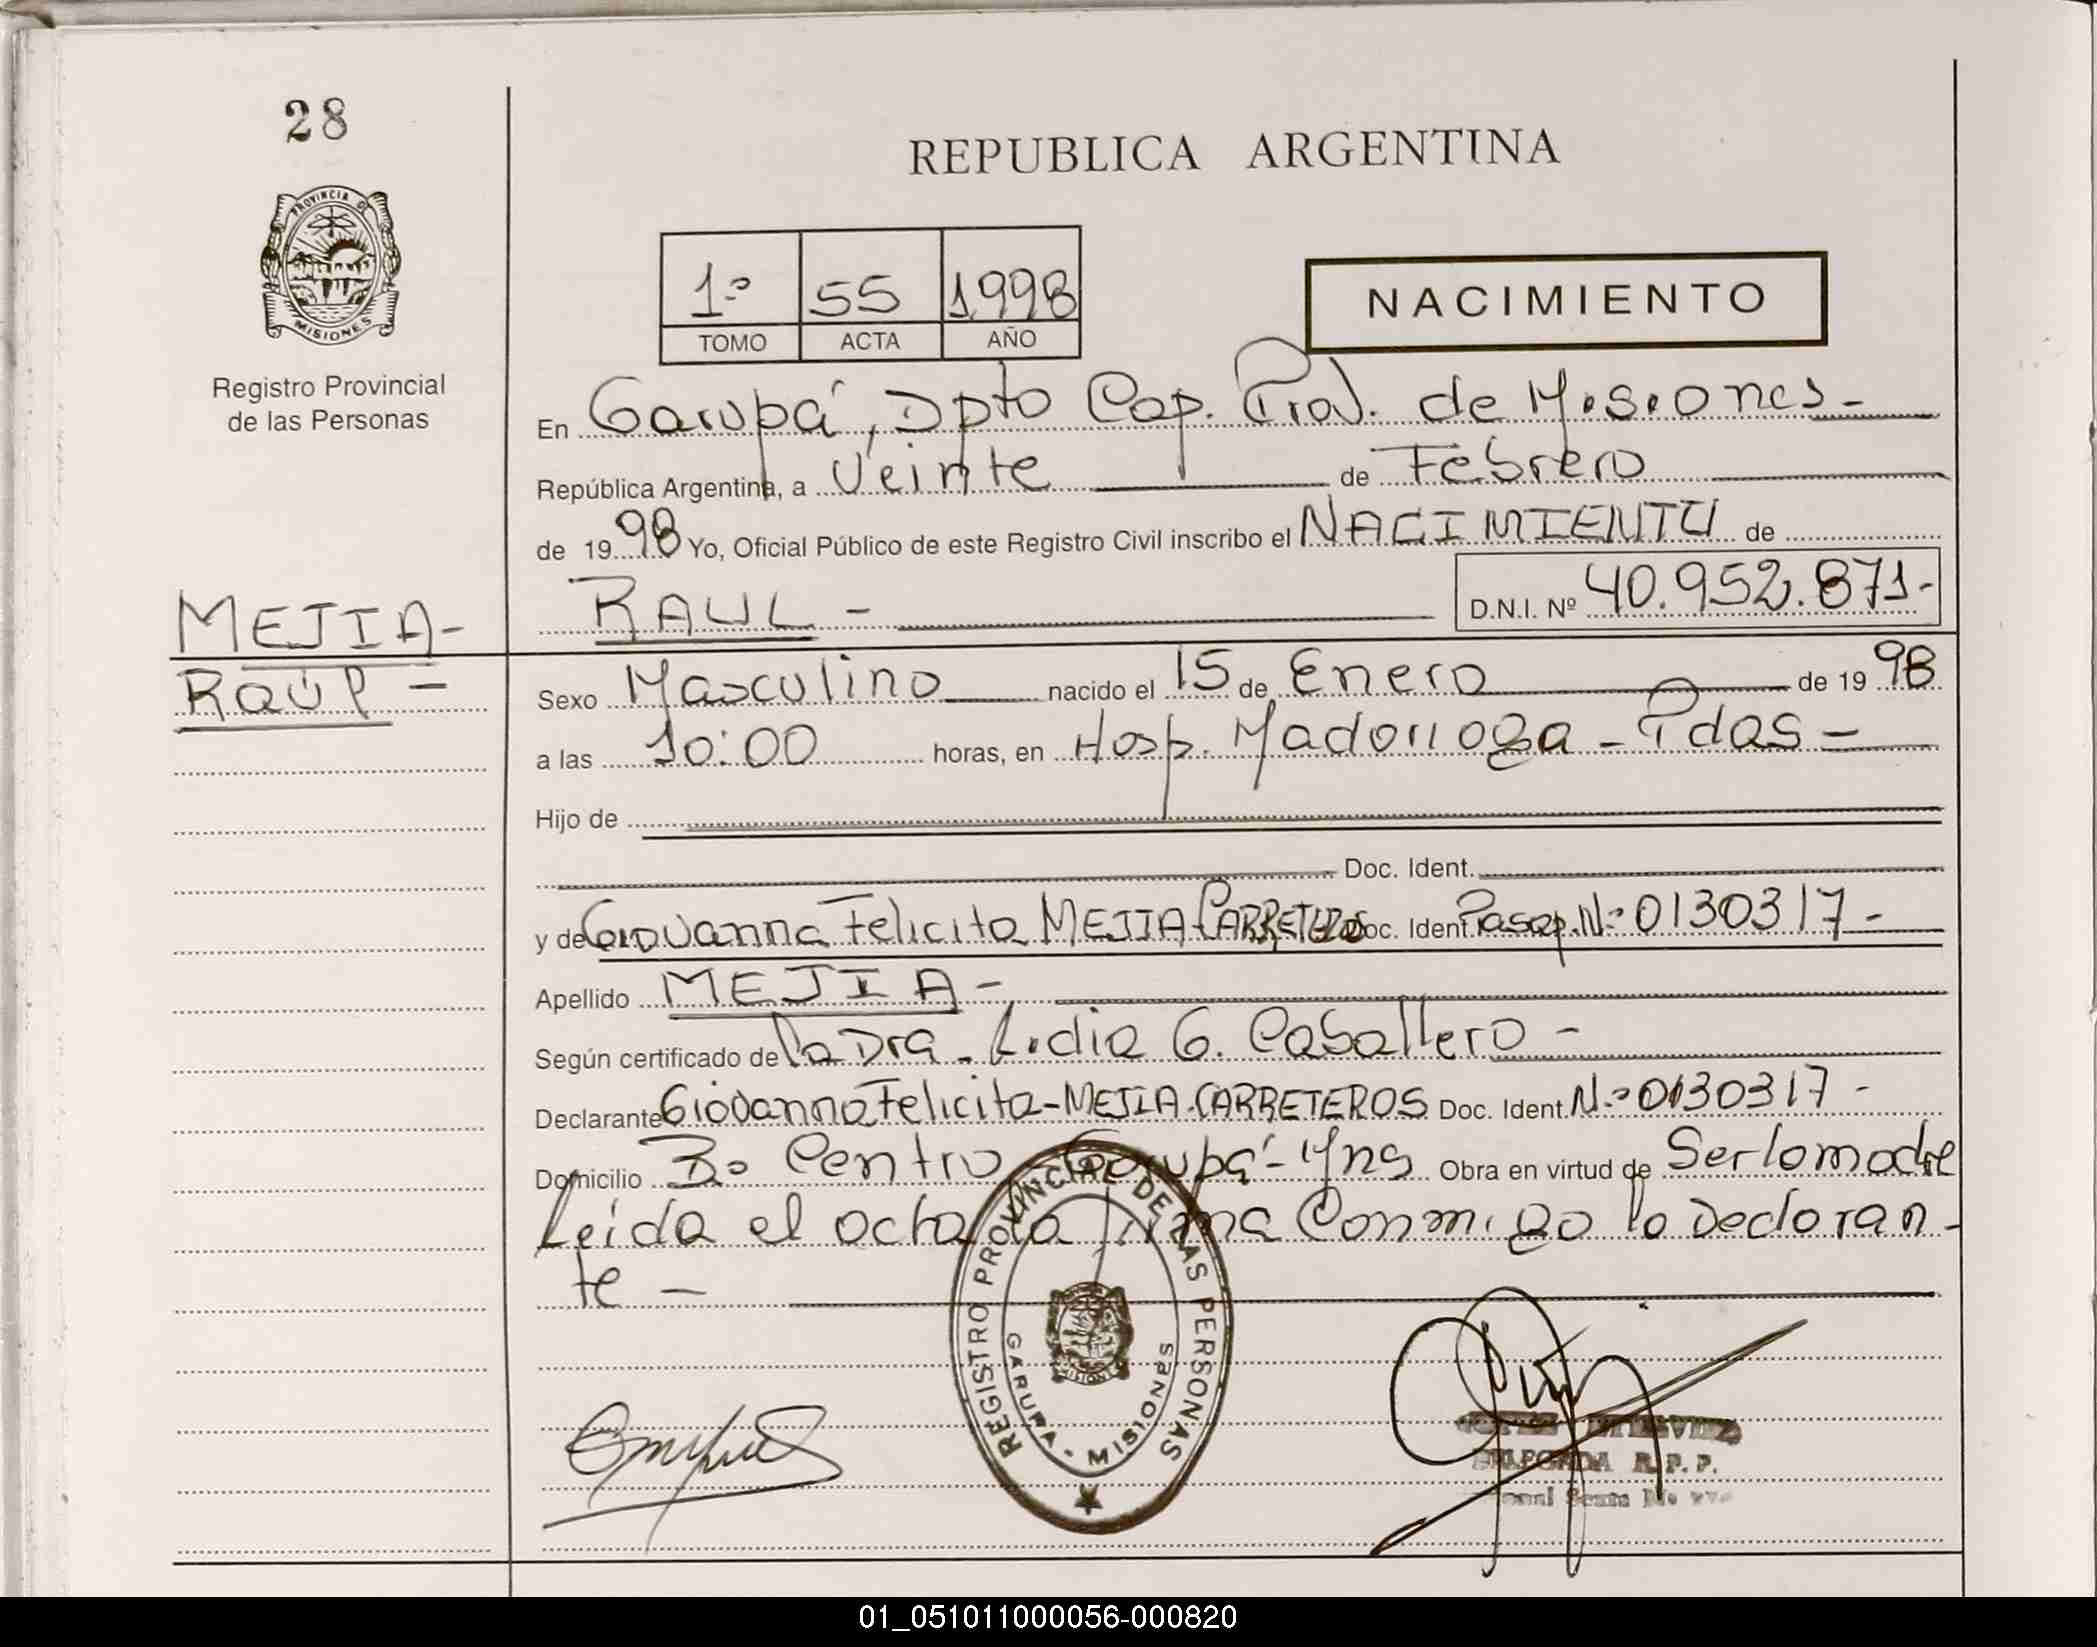 28
PROVINCIA DE
MISIONES
Registro Provincial
de las Personas
MEJIA-
Raúl -
REPUBLICA ARGENTINA
1º 55 1998
TOMO ACTA AÑO
NACIMIENTO
En Garupá, Dpto Cap. Prov. de Misiones-
República Argentina, a Veinte de Febrero
de 1998 Yo, Oficial Público de este Registro Civil inscribo el NACIMIENTO de
RAUL - D.N.I. Nº 40.952.871-
Sexo Masculino nacido el 15 de Enero de 1998
a las 10:00 horas, en Hosp. Madorroga - Pdas -
Hijo de
Doc. Ident.
y de Giovanna Felicita MEJIA-CARRETEROS Doc. Ident. Pasap. Nº 0130317-
Apellido MEJIA-
Según certificado de la Dra. Lidia G. Caballero -
Declarante Giovanna Felicita-MEJIA-CARRETEROS Doc. Ident. Nº 0130317-
Domicilio Bº Centro Garupá-Mns Obra en virtud de Ser la madre
Leída el acta la firma conmigo la Declaran-
te -
REGISTRO PROVINCIAL DE LAS PERSONAS
GARUPA - MISIONES
R.P.P.
01_051011000056-000820